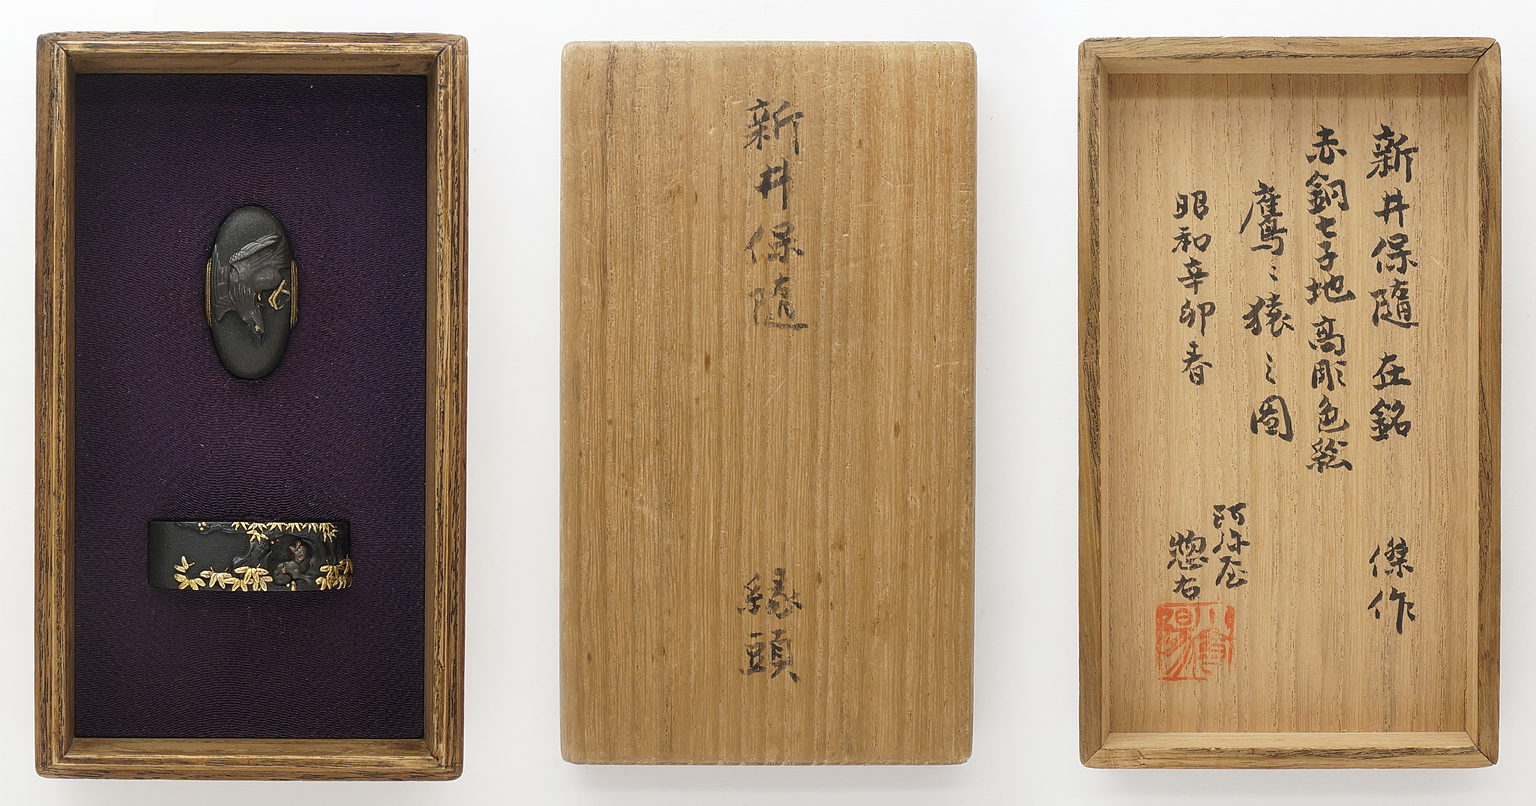 新井保随
縁頭
新井保随 在銘 傑作
赤銅七子地高彫色絵
鷹ミ猿ミ圖
昭和辛卯春
阿弥屋
惣右